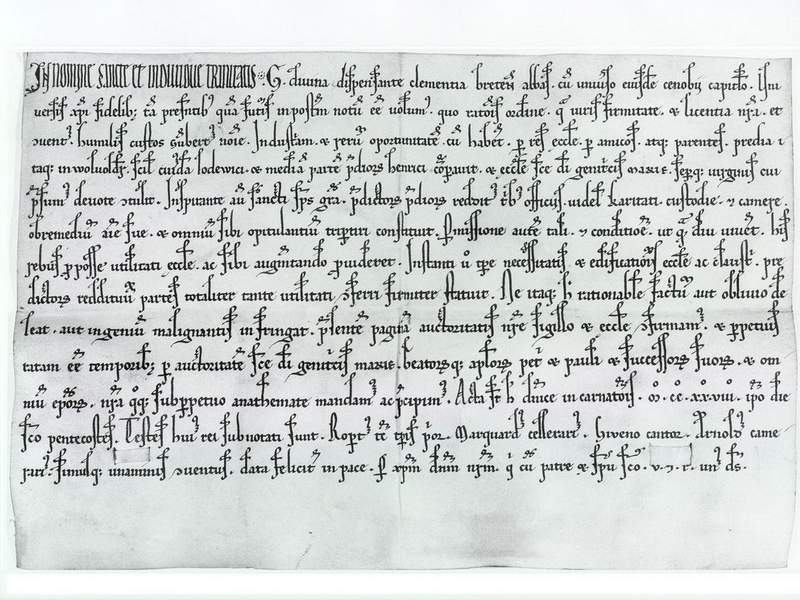 IN NOMINE SANCTE ET INDIVIDUE TRINITATIS. G. divina dispensante clementia breten abbas. cu universo eiusde cenobii capitlo. Uni
versis xpi fidelib; ta presentib; qua futis in postm notu ee volum. quo ratois ordine. q iuris firmitate. & licentia nra. et
ventu humilis custos noie. Industam. & reru oportunitate. cu habet. p res eccle. p amicos. atq; parentes. predia i
taq; in woluolds. scil cuida lodewici. & media parte pdiors henrici coparavit. & eccle sce di genitcis marie. semq; virginis cui
psum devote tulit. Inspirante au sancti sps gra. pdictors pdiors reddit trib officiis. videl karitati. custodie. 7 camere.
ob remediu aie sue. & omniu sibi opitulantiu tripertiri constituit. Pmissione aute tali. 7 conditioe. ut q diu viveret. his
rebus p posse utilitati eccle. ac sibi augmtando pvideret. Instanti u tpe necessitatis & edificationis eccle ac claustr. pre
dictors reddituu partes totaliter tante utilitati ferri firmiter statuit. Ne itaq; h rationable factu aut oblivio de
leat. aut ingeniu malignantis infringat. psente pagina auctoritatis nre sigillo & eccle firmam. & ppetuis
tatam ee temporib; p auctoritate sce di genitcis marie. beators q; aplors petri & pauli & successors suors. & om
niu epors. nra qq; sub ppetuo anathemate mandam ac pcipim. Acta st h dnice incarnatois. m. cc. xxviii. ipo die
sco pentecostes. Testes hui rei subnotati sunt. Ropt tc tpis por. Marquard cellerari. hiveno cantor. Arnold came
rari. simulq; unanimis ventus. data feliciter in pace. P xpm dnm nrm. q cu patre & spu sco. v. 7 r. un ds.